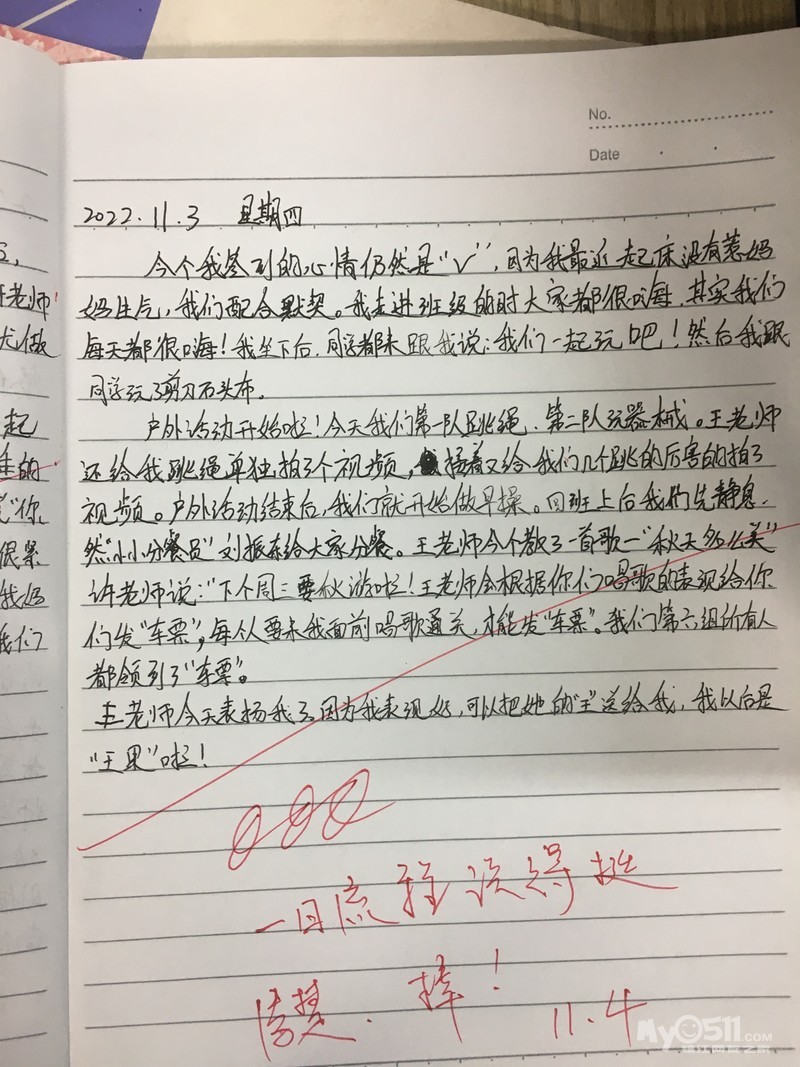 No.
Date
2022.11.3 星期四
今个我签到的心情仍然是“√”,因为我最近起床没有惹妈
妈生气,我们配合默契。我走进班级的时大家都很嗨,其实我们
每天都很嗨!我坐下后,同学都来跟我说:我们一起玩吧!然后我跟
同学玩了剪刀石头布。
户外活动开始啦!今天我们第一队跳绳,第二队玩器械。王老师
还给我跳绳单独拍了个视频,接着又给我们几个跳的厉害的拍了
视频。户外活动结束后,我们就开始做早操。回班上后我们先静息,
然“小小分餐员”刘振东给大家分餐。王老师今个教了一首歌—“秋天多么美”
许老师说:“下个周三要秋游啦!王老师会根据你们唱歌的表现给你
们发“车票”,每个人要来我面前唱歌通关,才能发“车票”。我们第六组所有人
都领到了“车票”。
王老师今天表扬我了,因为我表现好,可以把她的“王”送给我,我以后是
“王果”啦!
一日流程说得挺
清楚,棒!
11.4
My0511.COM
老师
尤做
起
的
“你
很紧
我妈
我们